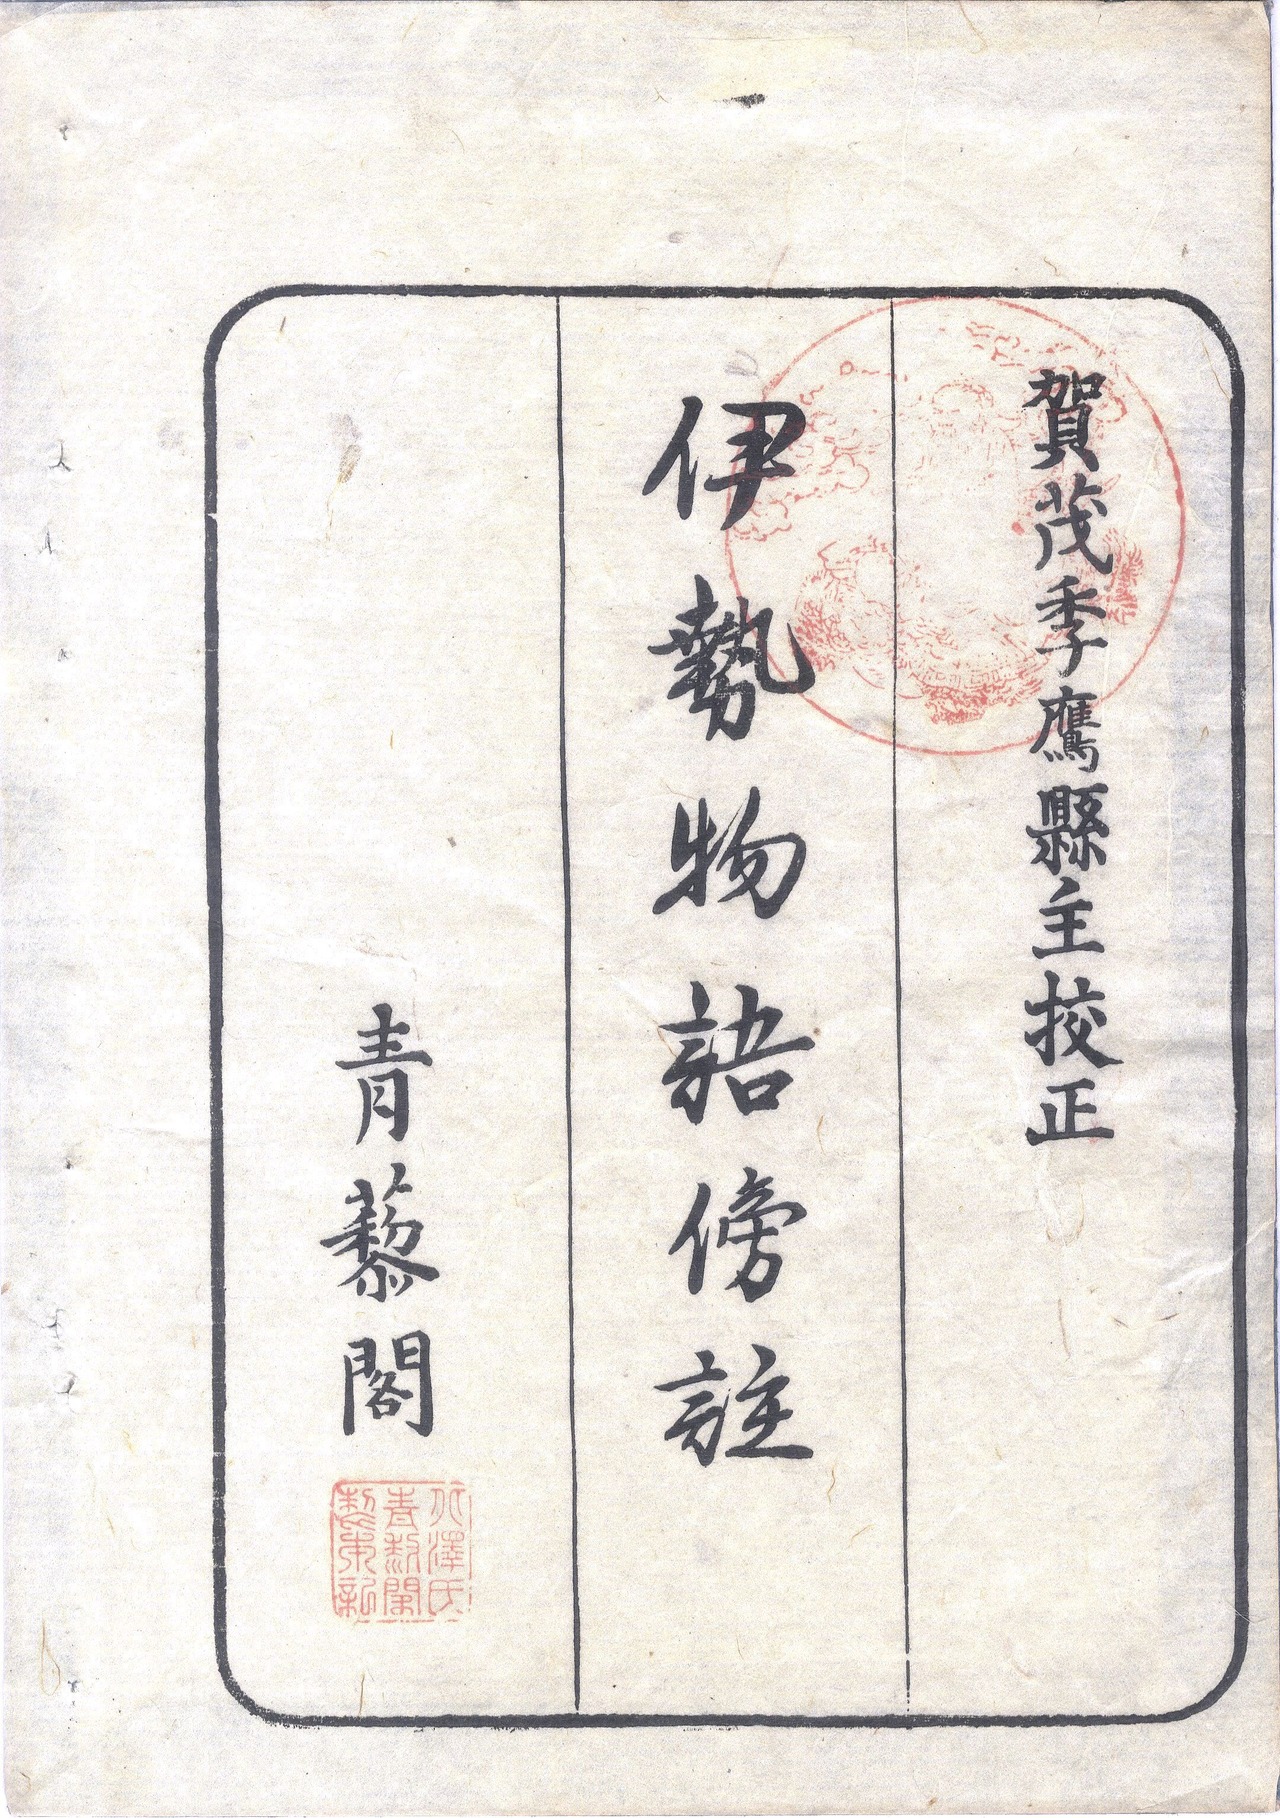 賀茂季鷹縣主挍正
伊勢物語傍註
青藜閣